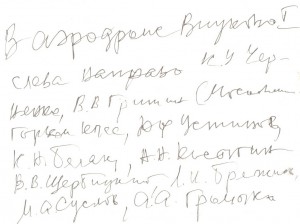 В аэродроме Внуково I
слева направо К.У Чер-
ненко, В.В Гришин (Москов
горком КПСС), Д.Ф Устинов,
К Н. Белян, А.Н. Косыгин
В.В. Щербицкий Л.И. Брежнев,
М А Суслов, А.А. Громыко